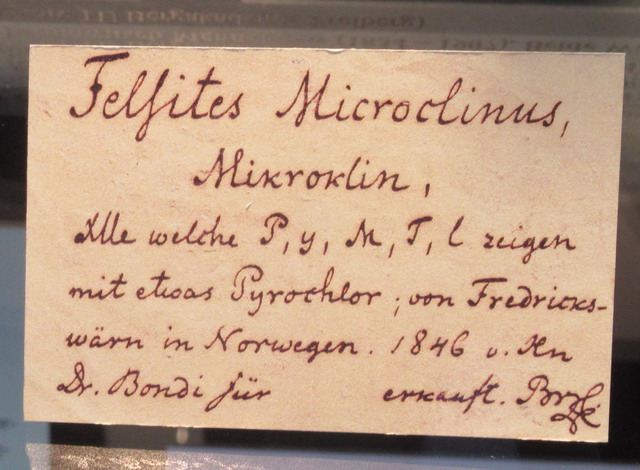 Felsites Microclinus,
Mikroklin,
Alle welche P, y, M, T, l zeigen
mit etwas Pyrochlor; von Fredricks-
wärn in Norwegen. 1846 v. Hn
Dr. Bondi für erkauft.